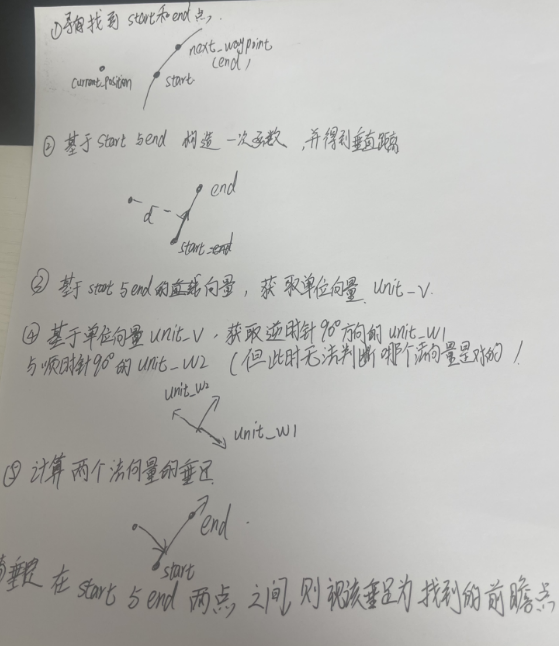 ①寻找到 start和end点,
next_waypoint
(end)
current_position
start
② 基于start与end 构造一次函数,并得到垂直距离
end
d
start_end
③ 基于start与end的直线向量,获取单位向量 unit_v.
④ 基于单位向量 unit_v,获取逆时针90°方向的 unit_w1
与顺时针90°的 unit_w2 (但此时无法判断哪个法向量是对的)
unit_w2
unit_w1
⑤ 计算两个法向量的垂足
end
start
垂足 在 start 与 end 两点之间,则视该垂足为找到的前瞻点